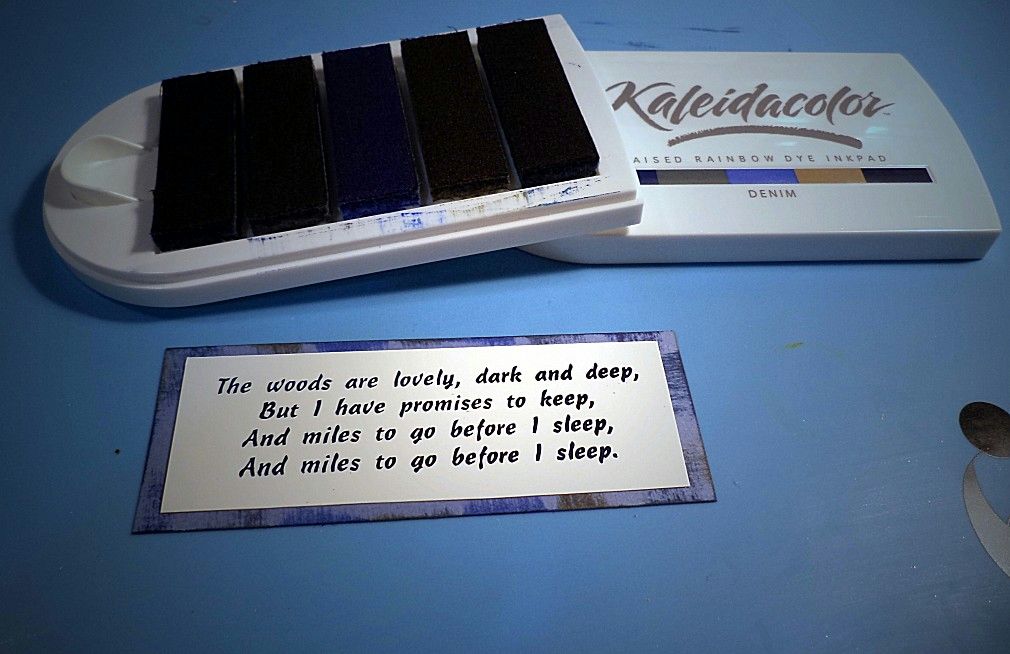 Kaleidacolor
AISED RAINBOW DYE INKPAD
DENIM
The woods are lovely, dark and deep,
But I have promises to keep,
And miles to go before I sleep,
And miles to go before I sleep.